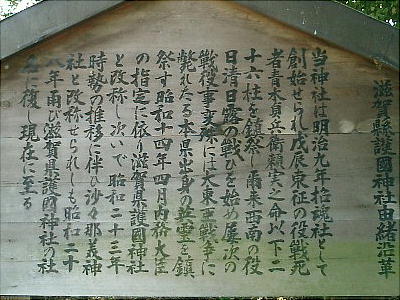 滋賀縣護國神社由緒沿革
当神社は明治九年招魂社として
創始せられ戊辰東征の役戦死
者青木貞兵衛頼実之命以下二
十六柱を鎮祭し爾来西南の役
日清日露の戦ひを始め屡次の
戦役事変殊に大東亜戦争に
斃れたる本県出身の英霊を鎮
祭す昭和十四年四月内務大臣
の指定に依り滋賀縣護國神社
と改称し次いで昭和二十三年
時勢の推移に伴ひ沙々那美神
社と改称せられしも昭和二十
八年再び滋賀県護國神社の社
名に復し現在に至る